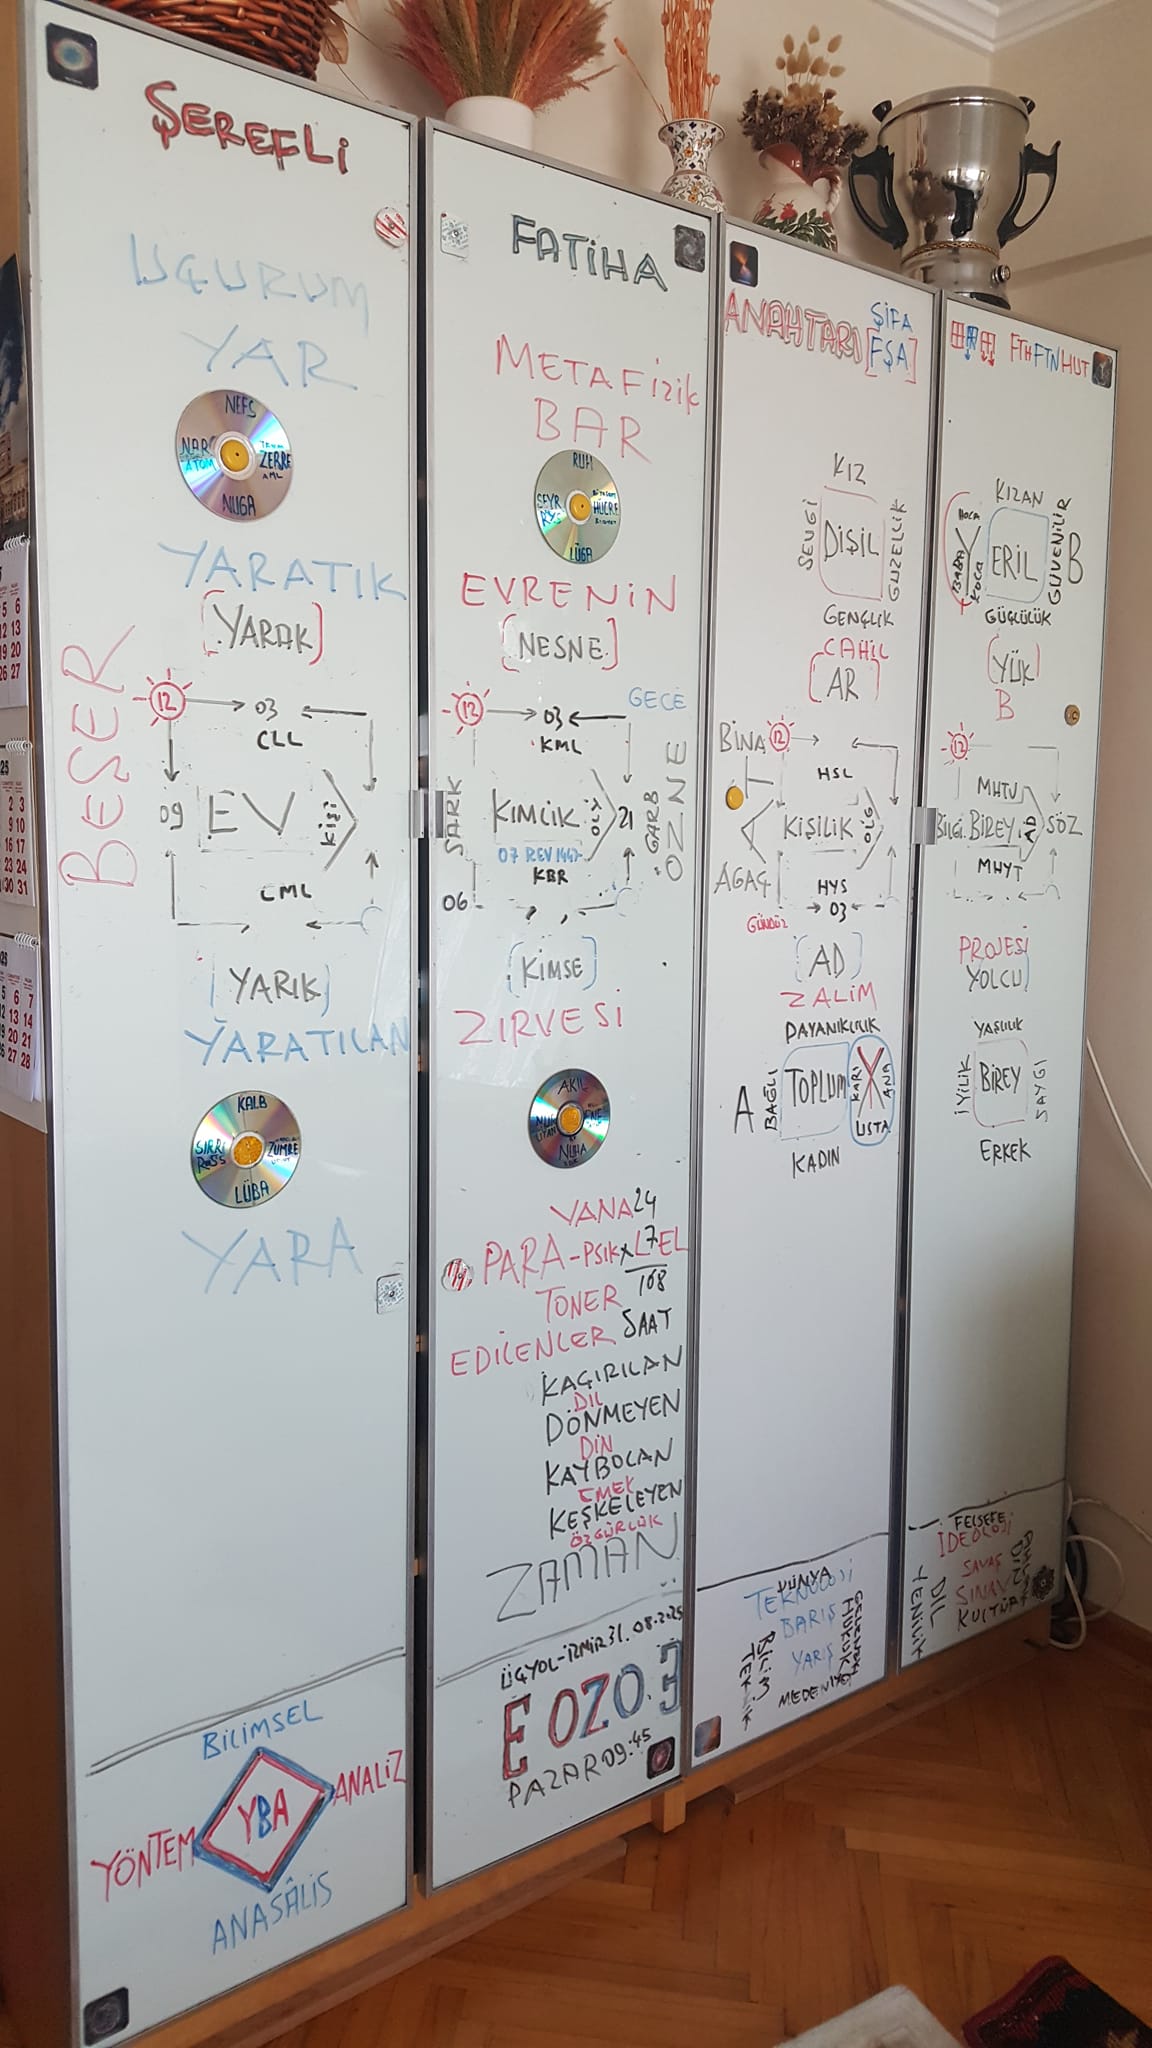 ŞEREFLİ
UÇURUM
YAR
NEFS
NAR
ATOM
ZERRE
NUGA
YARATIK
[YARAK]
BEŞER
12
03
CLL
09
EV
KİŞİ
CML
[YARIK]
YARATILAN
KALB
SIRRI
ZÜMRE
LÜBA
YARA
BİLİMSEL
YBA
ANALİZ
YÖNTEM
ANASÂLİS
FATİHA
METAFİZİK
BAR
RUH
SEYR
HÜCRE
LÜGA
EVRENİN
[NESNE]
GECE
12
03
KML
ŞARK
KİMLİK
OLİY
21
GARB
ÖZNE
07 REV 1447
KBR
06
[KİMSE]
ZİRVESİ
AKIL
NUHA
YANA 24
PARA-PSİK x 7 L-EL
168
TONER
SAAT
EDİLENLER
KAÇIRILAN
DİL
DÖNMEYEN
DİN
KAYBOLAN
EMEK
KEŞKELEYEN
ÖZGÜRLÜK
ZAMAN
ÜÇYOL-İZMİR 31.08.2025
E OZO 3
PAZAR 09:45
ANAHTARI
ŞİFA
[FŞA]
KIZ
SEVGİ
DİŞİL
GÜZELLİK
GENÇLİK
CAHİL
[AR]
BİNA
12
HSL
KİŞİLİK
OLG
AGAÇ
HYS
03
GÜNDÜZ
[AD]
ZALİM
DAYANIKLILIK
A
BAĞLI
TOPLUM
KARI
ANA
USTA
KADIN
DÜNYA
TEKNOLOJİ
BARIŞ
YARIŞ
MEDENİYET
BİLİM
TEKNİK
GELENEK
HUKUK
FTH FTN HUT
KIZAN
HOCA
BABA
KOCA
ERİL
GÜVENİLİR
B
GÜÇLÜLÜK
(YÜK)
B
12
MHTU
BİLGİ
BİREY
AD
SÖZ
MHYT
PROJESİ
YOLCU
YAŞLILIK
İYİLİK
BİREY
SAYGI
ERKEK
FELSEFE
İDEOLOJİ
SAVAŞ
SINAV
KÜLTÜR
DİL
YENİLİK
DİN
AHLAK